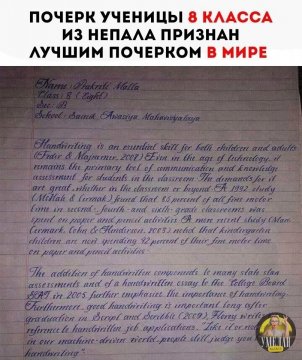 ПОЧЕРК УЧЕНИЦЫ 8 КЛАССА
ИЗ НЕПАЛА ПРИЗНАН
ЛУЧШИМ ПОЧЕРКОМ В МИРЕ
Name: Prakriti Malla
Class: 8 (Eight)
Sec: B
School: Sainik Awasiya Mahavidyalaya
Handwriting is an essential skill for both children and adults
(Feder & Majnemer, 2007). Even in the age of technology, it
remains the primary tool of communication and knowledge
assessment for students in the classroom. The demands for it
are great, whether in the classroom or beyond. A 1992 study
(McHale & Cermak) found that 85 percent of all fine motor
time in second- fourth- and sixth-grade classrooms was
spent on paper and pencil activities. A more recent study (Marr
Cermark, Cohn & Henderson, 2003) noted that kindergarten
children are now spending 42 percent of their fine motor time
on paper and pencil activities.
The addition of handwritten components to many state
assessments and of a handwritten essay to the College Board
SAT in 2005 further emphasize the importance of handwriting.
Furthermore, good handwriting is important long after
graduation. In
reference to handwritten job applications. Like it or not
in our machine-driven world, people still judge you by
handwriting.